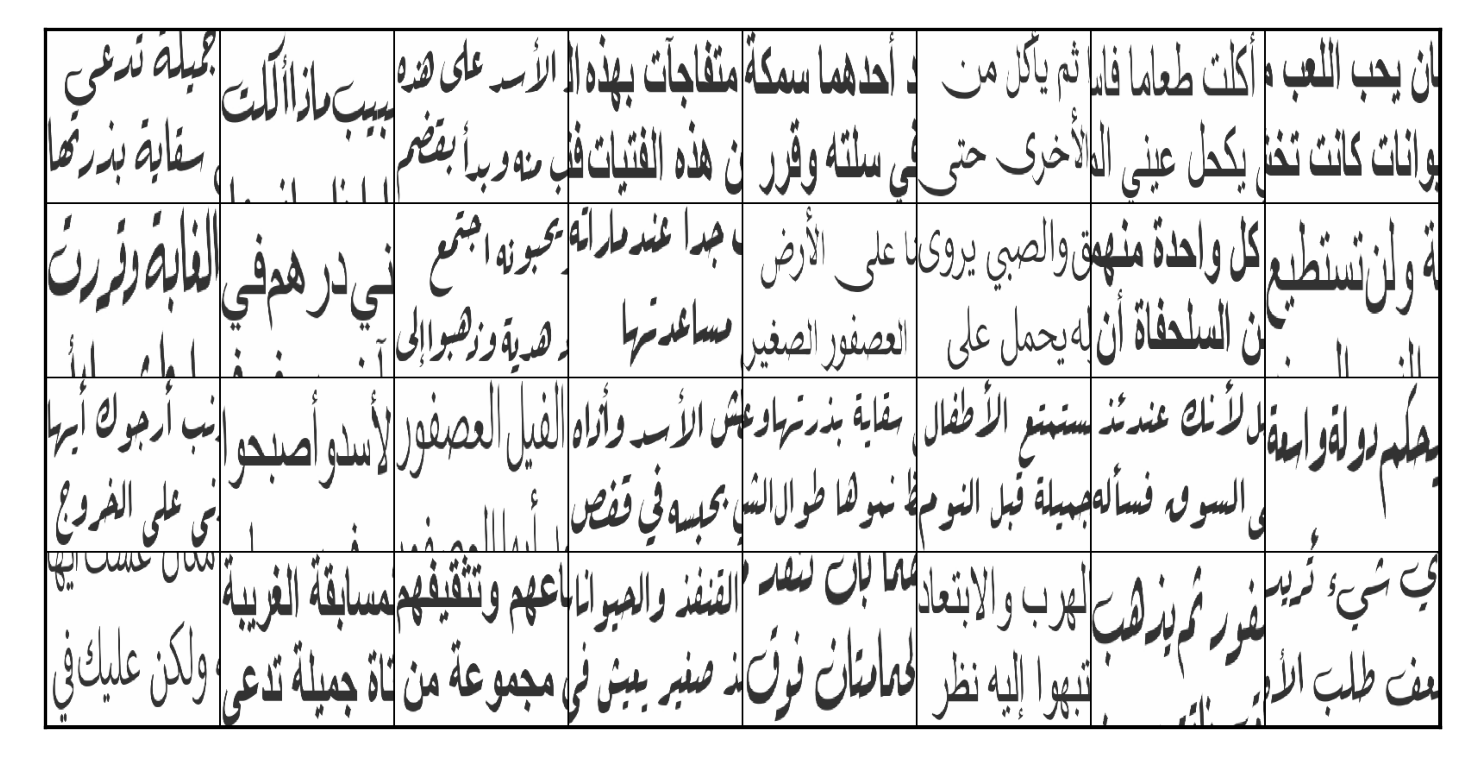 يحب اللعب
كانت تخت
أكلت طعاما فاس
يكحل عيني الم
ثم يأكل من
الأخرى حتى
أحدهما سمكة
في سلته وقرر
متفاجآت بهذه ال
ن هذه الفتيات فت
الأسد على هذه
ب منه وبدأ بقضم
بيب ماذا أكلت
جميلة تدعى
سقاية بذرتها
ة ولن تستطيع
كل واحدة منهم
ن السلحفاة أن
ق والصبي يروى
له يحمل على
نا على الأرض
العصفور الصغير
ب جدا عندما رأته
مساعدتها
يحبونه اجتمع
هدية وذهبوا إلى
ني درهم في
الغابة وقررت
يحكم دولة واسعة
ل لأنك عندئذ
ى السوق فسأله
ستمتع الأطفال
جميلة قبل النوم
سقاية بذرتها و
ظ نموها طوال الش
ش الأسد وأذاه
ي بحبسه في قفص
الفيل العصفور
أيها العصفور
لأسد وأصبحوا
نب أرجوك أيها
نى على الخروج
ي شيء تريد
طلب الأ
فور ثم يذهب
لهرب والابتعاد
تنبهوا إليه نظر
هما بأن تنقد
لحمامتان فوق
القنفذ والحيوانا
ذ صغير يعيش في
اعهم وتثقيفهم
مجموعة من
مسابقة الغريبة
تاة جميلة تدعى
مكان عشك أيها
ولكن عليك في